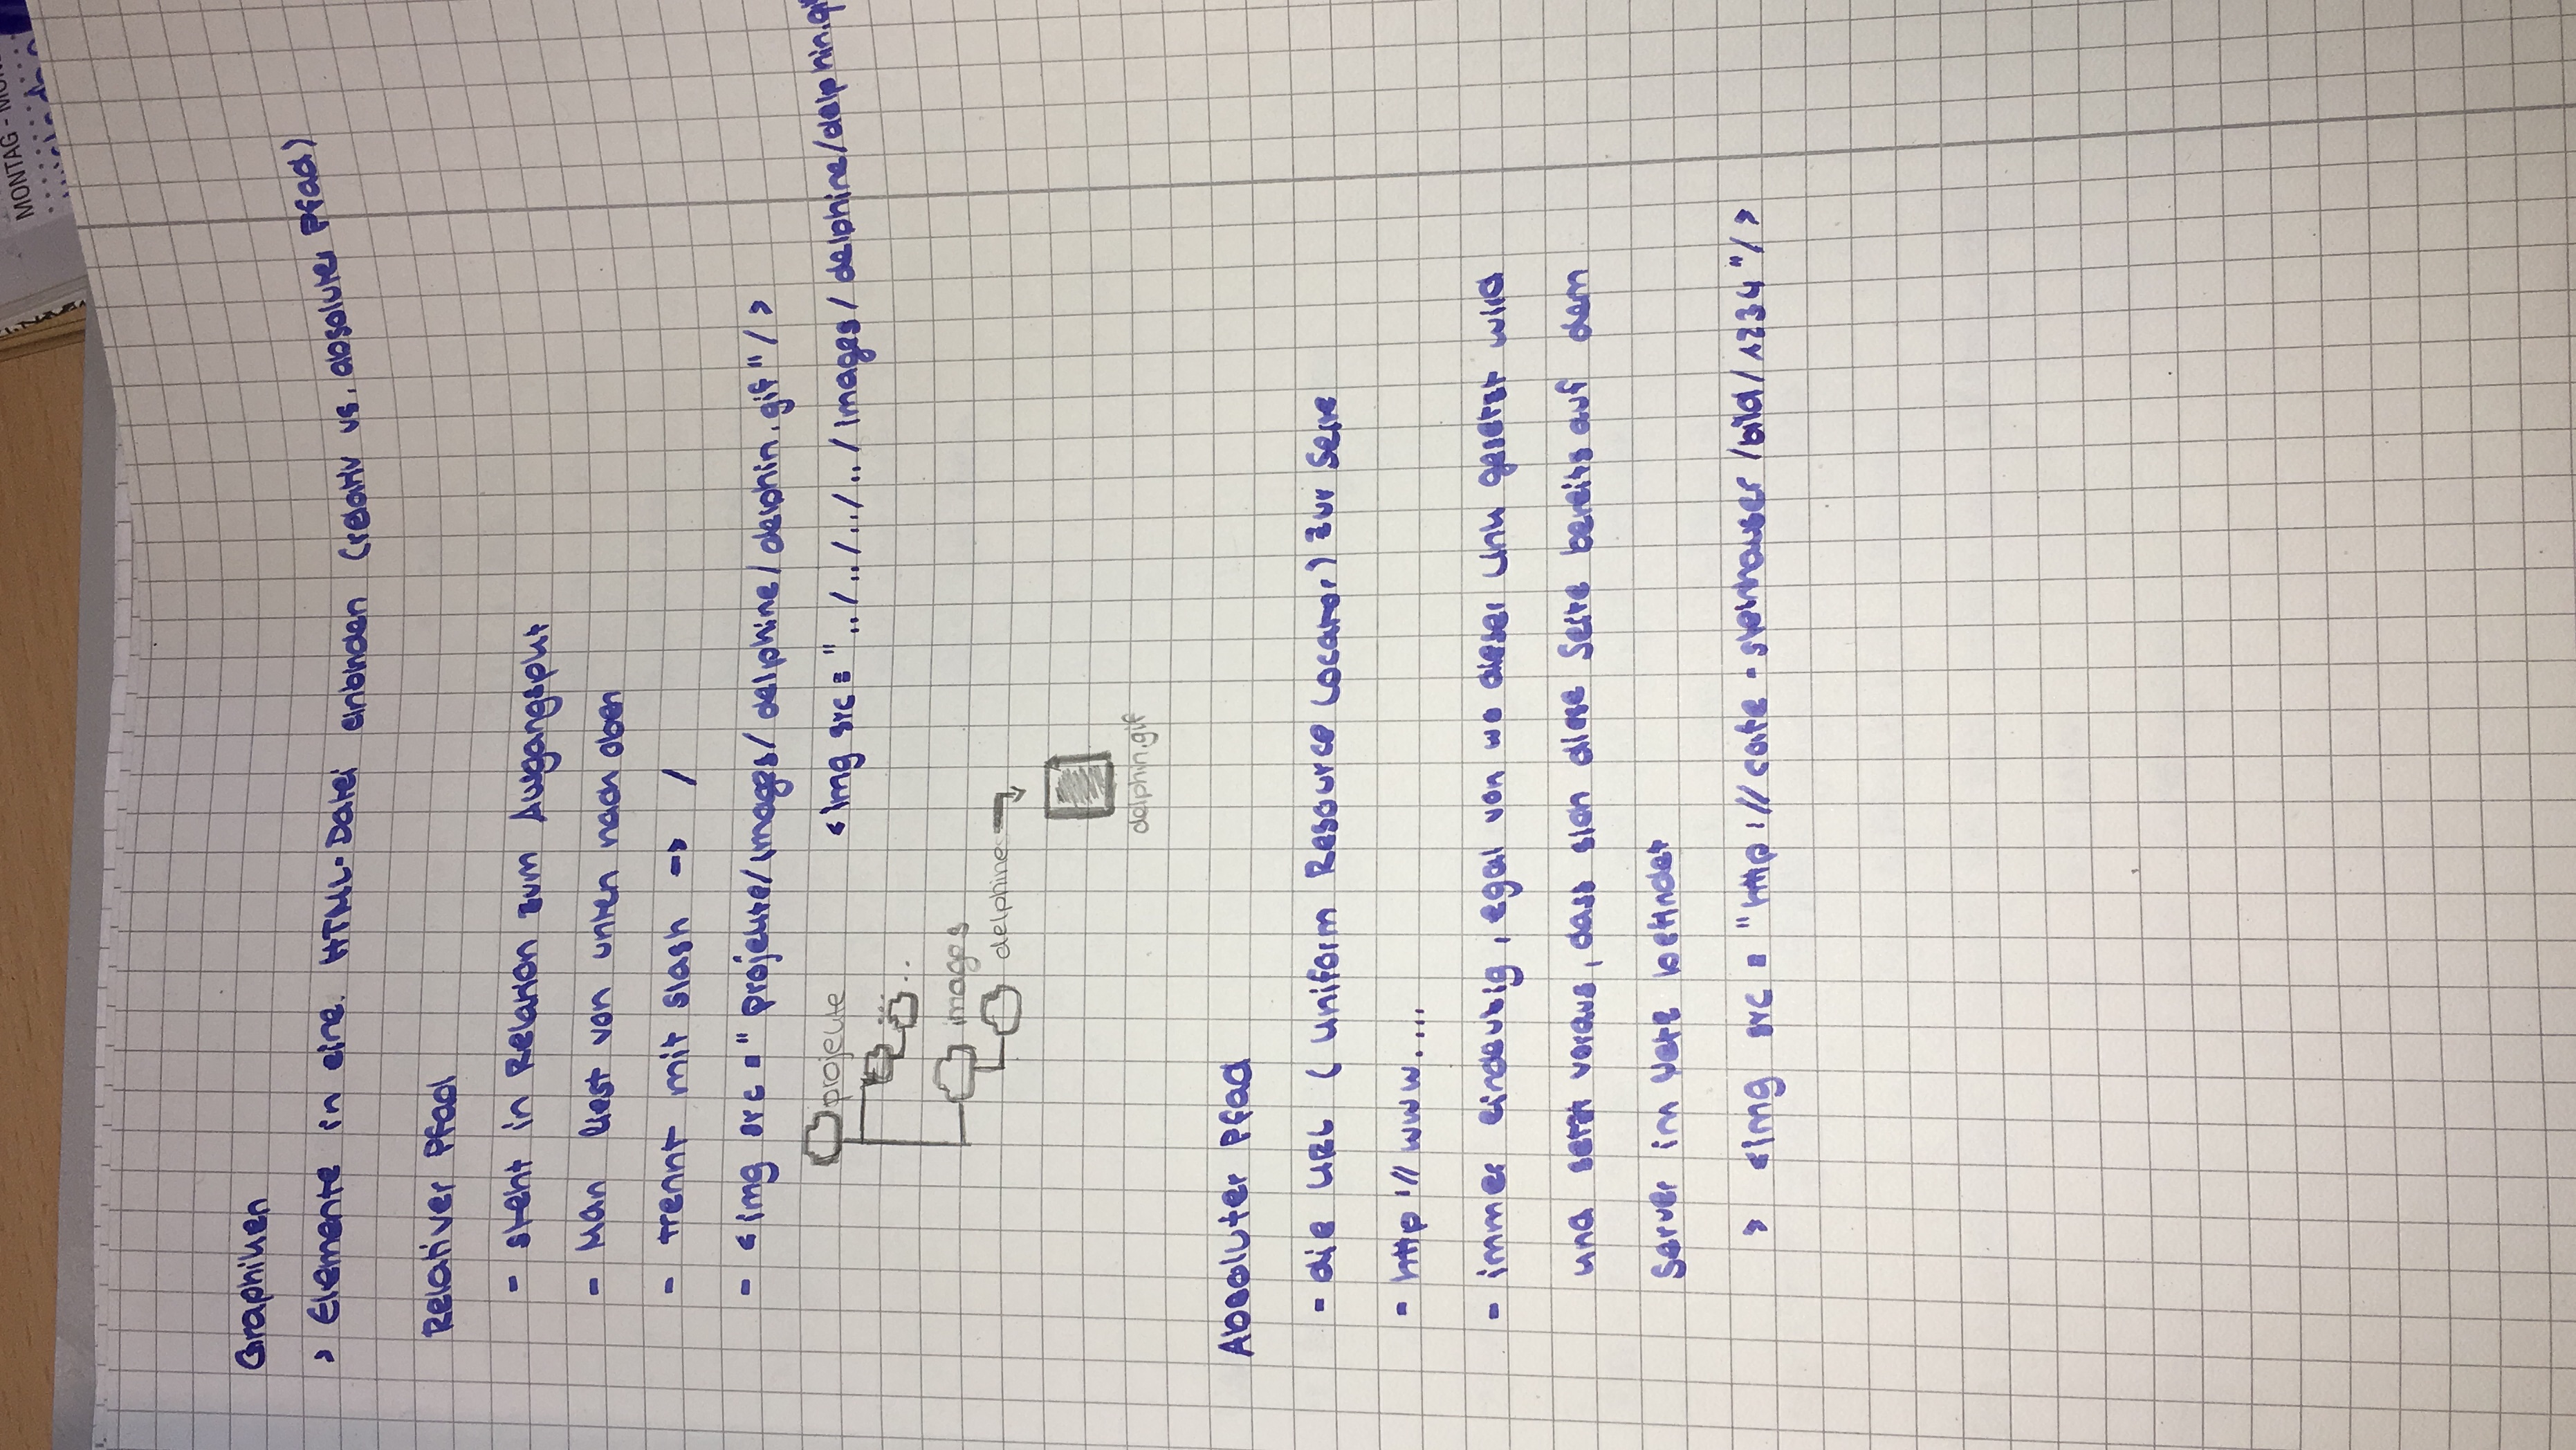 MONTAG - MON
Graphiken
> Elemente in eine HTML-Datei einbinden (relativ vs. absoluter Pfad)
Relativer Pfad
- steht in Relation zum Ausgangspkt
- Man liest von unten nach oben
- trennt mit Slash -> /
- <img src = "projekte/images/delphine/delphin.gif"/>
<img src = "../../../../images/delphine/delphin.gi
projekte
...
..
images
delphine
delphin.gif
Absoluter Pfad
- die URL (Uniform Resource Locator) zur Seite
- http://www....
- immer eindeutig, egal von wo dieser Link gesetzt wird
und setzt voraus, dass sich diese Seite bereits auf dem
Server im Netz befindet
> <img src = "http://cafe-steinhauser/bild/1234"/>